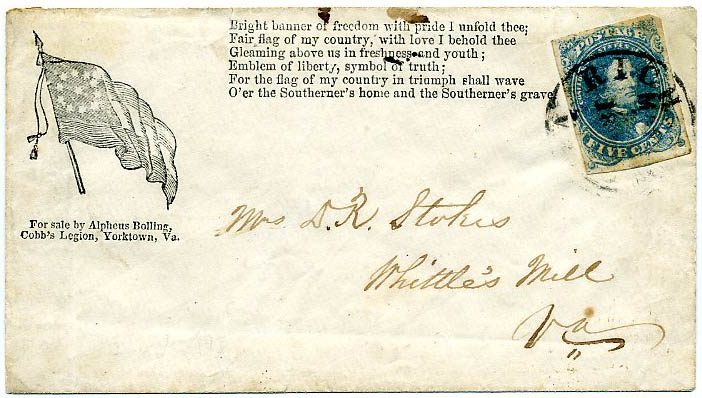 Bright banner of freedom with pride I unfold thee;
Fair flag of my country, with love I behold thee
Gleaming above us in freshness and youth;
Emblem of liberty, symbol of truth;
For the flag of my country in triumph shall wave
O'er the Southerner's home and the Southerner's grave
POSTAGE
FIVE CENTS
RICH
For sale by Alpheus Bolling,
Cobb's Legion, Yorktown, Va.
Mrs D. R. Stokes
Whittle's Mill
Va